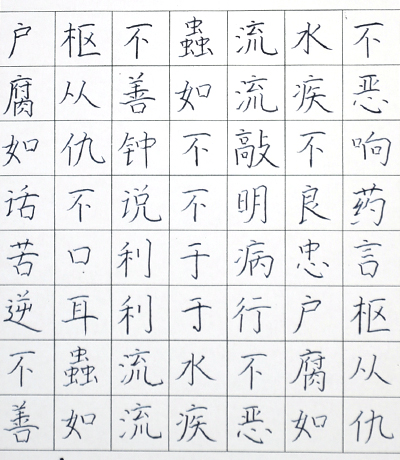 户枢不蟲流水不
腐从善如流疾恶
如仇钟不敲不响
话不说不明良药
苦口利于病忠言
逆耳利于行户枢
不蟲流水不腐从
善如流疾恶如仇